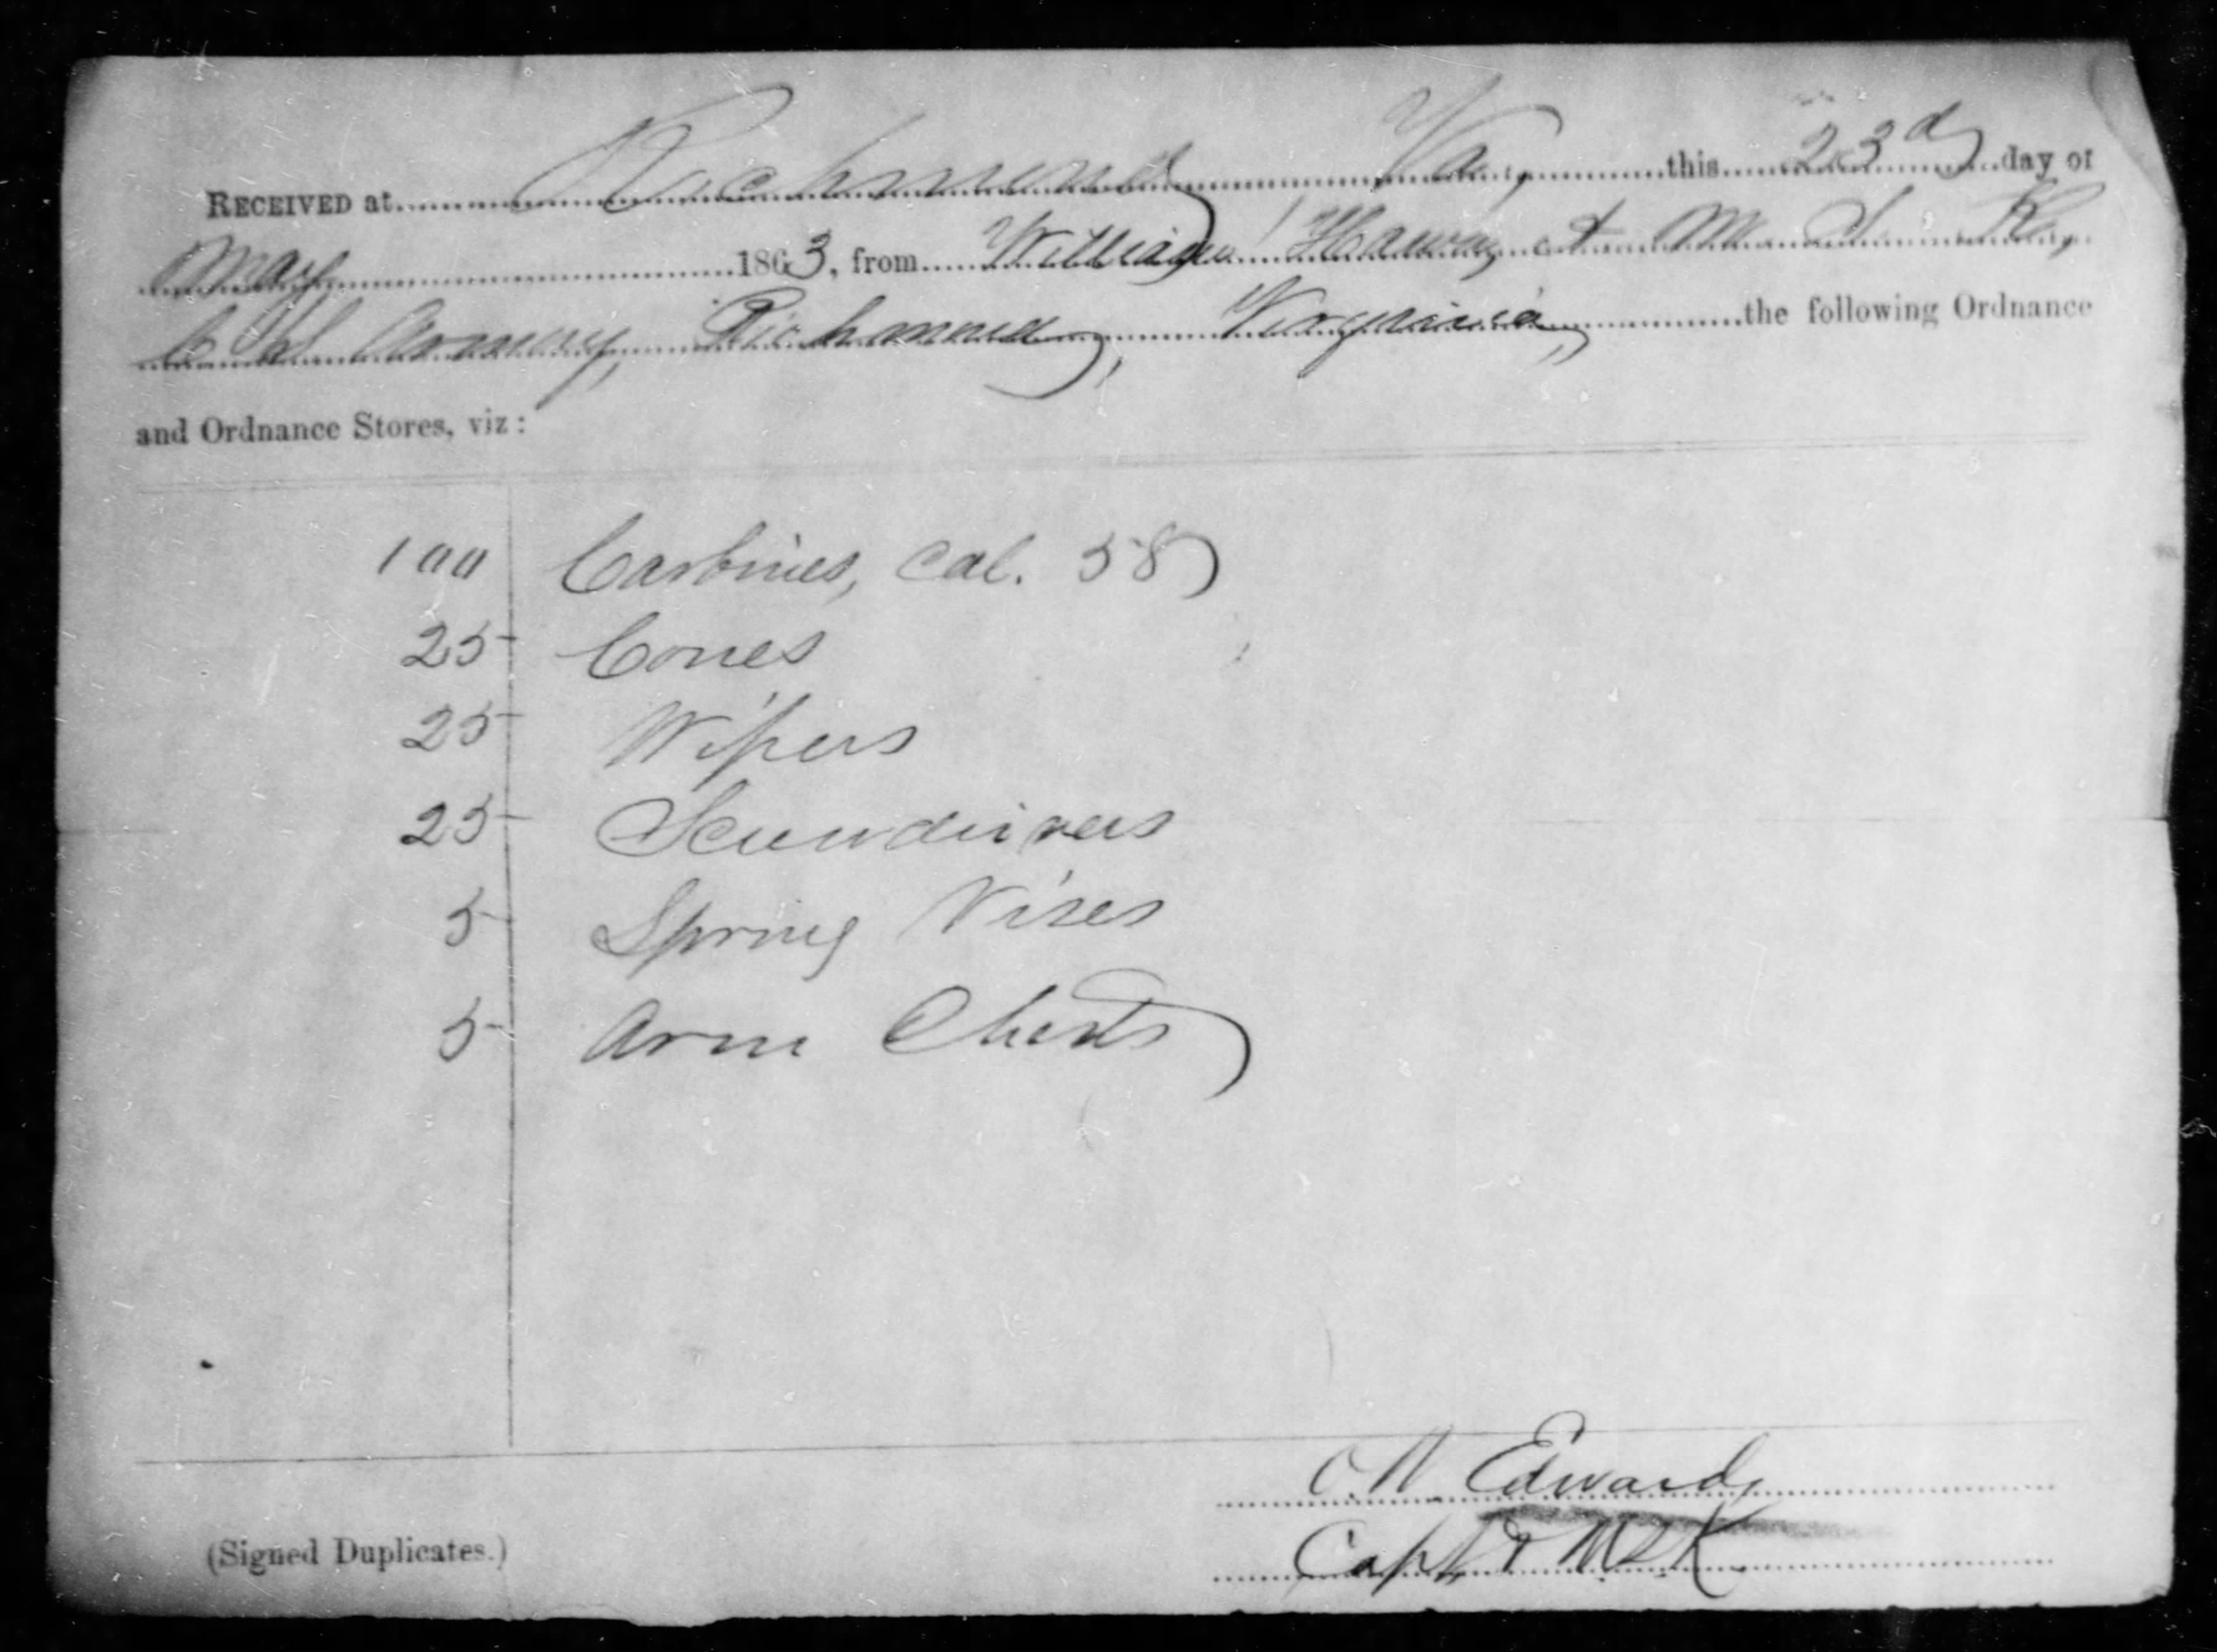 RECEIVED at Richmond Va, this 23d day of
May 1863, from William Haway, & M. S. K.,
C. S. Armory, Richmond, Virginia, the following Ordnance
and Ordnance Stores, viz:
100 Carbines, Cal. 58
25 Cones
25 Wipers
25 Screwdrivers
5 Spring Vises
5 Arm Chests
O.W. Edwards
(Signed Duplicates.) Capt & MSK